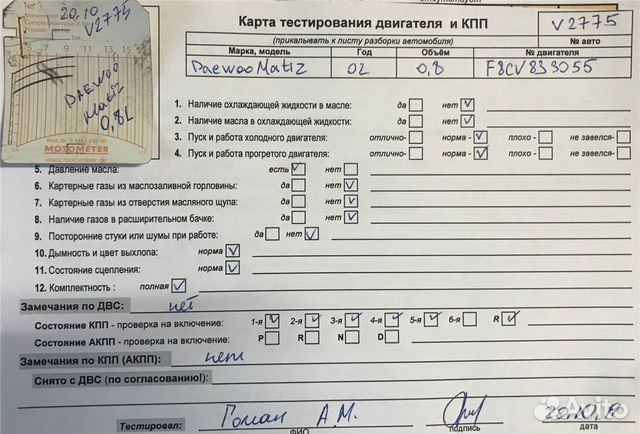 20.10
V2775
5 7 9 11 13 15
DAEWOO
Matiz
0,8L
MOTOMETER
www.motometer.de
Карта тестирования двигателя и КПП
(прикалывать к листу разборки автомобиля)
V2775
№ авто
Марка, модель Год Объём № двигателя
Daewoo Matiz 02 0,8 F8CV833055
1. Наличие охлаждающей жидкости в масле: да нет
2. Наличие масла в охлаждающей жидкости: да нет
3. Пуск и работа холодного двигателя: отлично- норма - плохо - не завелся-
4. Пуск и работа прогретого двигателя: отлично- норма - плохо - не завелся-
5. Давление масла: есть нет
6. Картерные газы из маслозаливной горловины: да нет
7. Картерные газы из отверстия масляного щупа: да нет
8. Наличие газов в расширительном бачке: да нет
9. Посторонние стуки или шумы при работе: да нет
10. Дымность и цвет выхлопа: норма
11. Состояние сцепления: норма
12. Комплектность : полная
Замечания по ДВС: нет
Состояние КПП - проверка на включение: 1-я 2-я 3-я 4-я 5-я 6-я R
Состояние АКПП - проверка на включение: P R N D
Замечания по КПП (АКПП): нет
Снято с ДВС (по согласованию!):
Тестировал: Гоман А.М. 20.10.
ФИО подпись дата
Avito